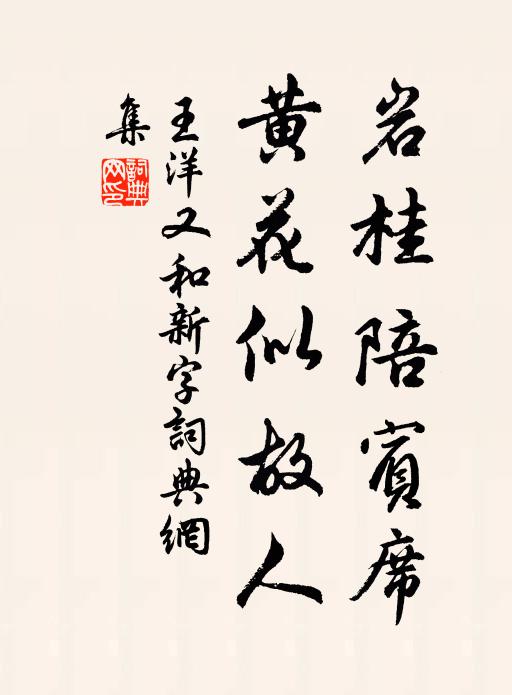 岩桂陪賓席
黄花似故人
王洋又和新字詞典網
集
詞典網印